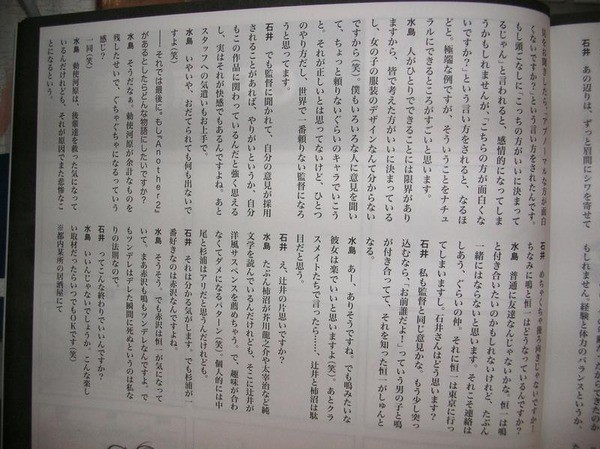 石井　あの辺りは、ずっと眉間にシワを寄せて
くないですか？」という言い方をされたんです。
もし頭ごなしに「こっちの方がいいに決まって
るじゃん」と言われると、感情的になってしま
うかもしれませんが、「こちらの方が面白くな
いですか？」という言い方をされると、なるほ
どと。極端な例ですが、そういうことをナチュ
ラルにできるところがすごいと思います。
水島　人がひとりでできることには限界があり
ますから、皆で考えた方がいいに決まっている
し、女の子の服装のデザインなんて分からない
ですから（笑）。僕もいろいろな人に意見を聞い
て、ちょっと頼りないぐらいのキャラでいこう
と。それが正しいとは思ってないけど、ひとつ
のやり方だし、世界で一番頼りない監督になろ
うと思ってます。
石井　でも監督に聞かれて、自分の意見が採用
されることがあれば、やりがいというか、自分
もこの作品に関わっているんだと強く思える
し、実はそれが快感でもあるんですよね。あと
スタッフへの気遣いもお上手で。
水島　いやいや、おだてられても何も出ないで
すよ（笑）
――それでは最後に。もし『Another2』
があるとしたらどんな物語にしたいですか？
水島　そうだなぁ。勅使河原が余計なものを
残したせいで、ぐちゃぐちゃになるっていう
感じ？
一同（笑）
水島　勅使河原は、後輩達を救った気になって
いるんだけれども、それが原因でまた悲惨なこ
とになるという。
れませんが。経験と体力のバランスというか、
石井　めちゃくちゃ後ろ向きじゃないですか！
ちなみに鳴と恒一はどうなっているんですか？
水島　普通に友達なんじゃないかな。恒一は鳴
と付き合いたいのかもしれないけれど、たぶん
一緒にはならないと思います。それこそ連絡は
しあう、ぐらいの仲。それに恒一は東京に行っ
てしまいますし。石井さんはどう思います？
石井　私も監督と同じ意見かな。もう少し突っ
込むなら、「お前誰だよ！」っていう男の子と鳴
が付き合ってて、それを知った恒一がしゅんと
なる。
水島　あー、ありそうですね。でも鳴みたいな
彼女は楽でいいと思いますよ（笑）。あとクラ
スメイトたちで言ったら……、辻井と柿沼は駄
目だと思う。
石井　え、辻井の片思いですか？
水島　たぶん柿沼が芥川龍之介や太宰治など純
文学を読んでいるんだけれども、そこに辻井が
洋風サスペンスを薦めちゃう。で、趣味が合わ
なくてダメになるパターン（笑）。個人的には中
尾と杉浦はアリだと思うんだけれども。
石井　それは分かる気がします。でも杉浦が一
番好きなのは赤沢なんですよね。
水島　そうそう、でも赤沢は恒一が気になって
いて。まぁ赤沢も鳴もツンデレなんですよ。で
もツンデレはデレた瞬間に死ぬというのは私な
りの法則なので。
石井　ってこんな終わりでいいんですか？
水島　いいんじゃないでしょうか。こんな楽し
い取材だったらいつでもOKです（笑）
※都内某所の居酒屋にて